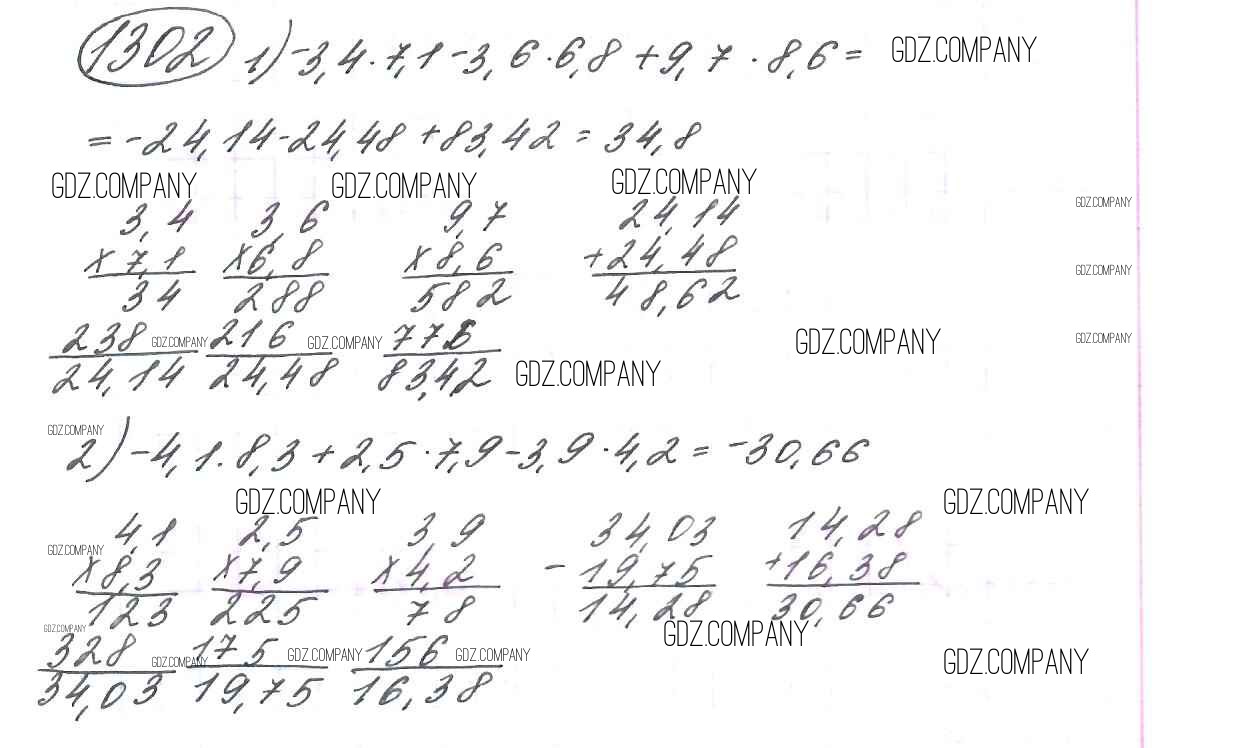 1302 1) -3,4 · 7,1 - 3,6 · 6,8 + 9,7 · 8,6 = GDZ.COMPANY
= -24,14 - 24,48 + 83,42 = 34,8
GDZ.COMPANY GDZ.COMPANY GDZ.COMPANY
3,4 3,6 9,7 24,14 GDZ.COMPANY
x 7,1 x 6,8 x 8,6 + 24,48 GDZ.COMPANY
34 288 582 48,62
238 GDZ.COMPANY 216 GDZ.COMPANY 776 GDZ.COMPANY GDZ.COMPANY
24,14 24,48 83,42 GDZ.COMPANY
GDZ.COMPANY
2) -4,1 · 8,3 + 2,5 · 7,9 - 3,9 · 4,2 = -30,66
GDZ.COMPANY GDZ.COMPANY
4,1 2,5 3,9 34,03 14,28
GDZ.COMPANY
x 8,3 x 7,9 x 4,2 - 19,75 + 16,38
123 225 78 14,28 30,66
GDZ.COMPANY GDZ.COMPANY
328 GDZ.COMPANY 175 GDZ.COMPANY 156 GDZ.COMPANY GDZ.COMPANY
34,03 19,75 16,38